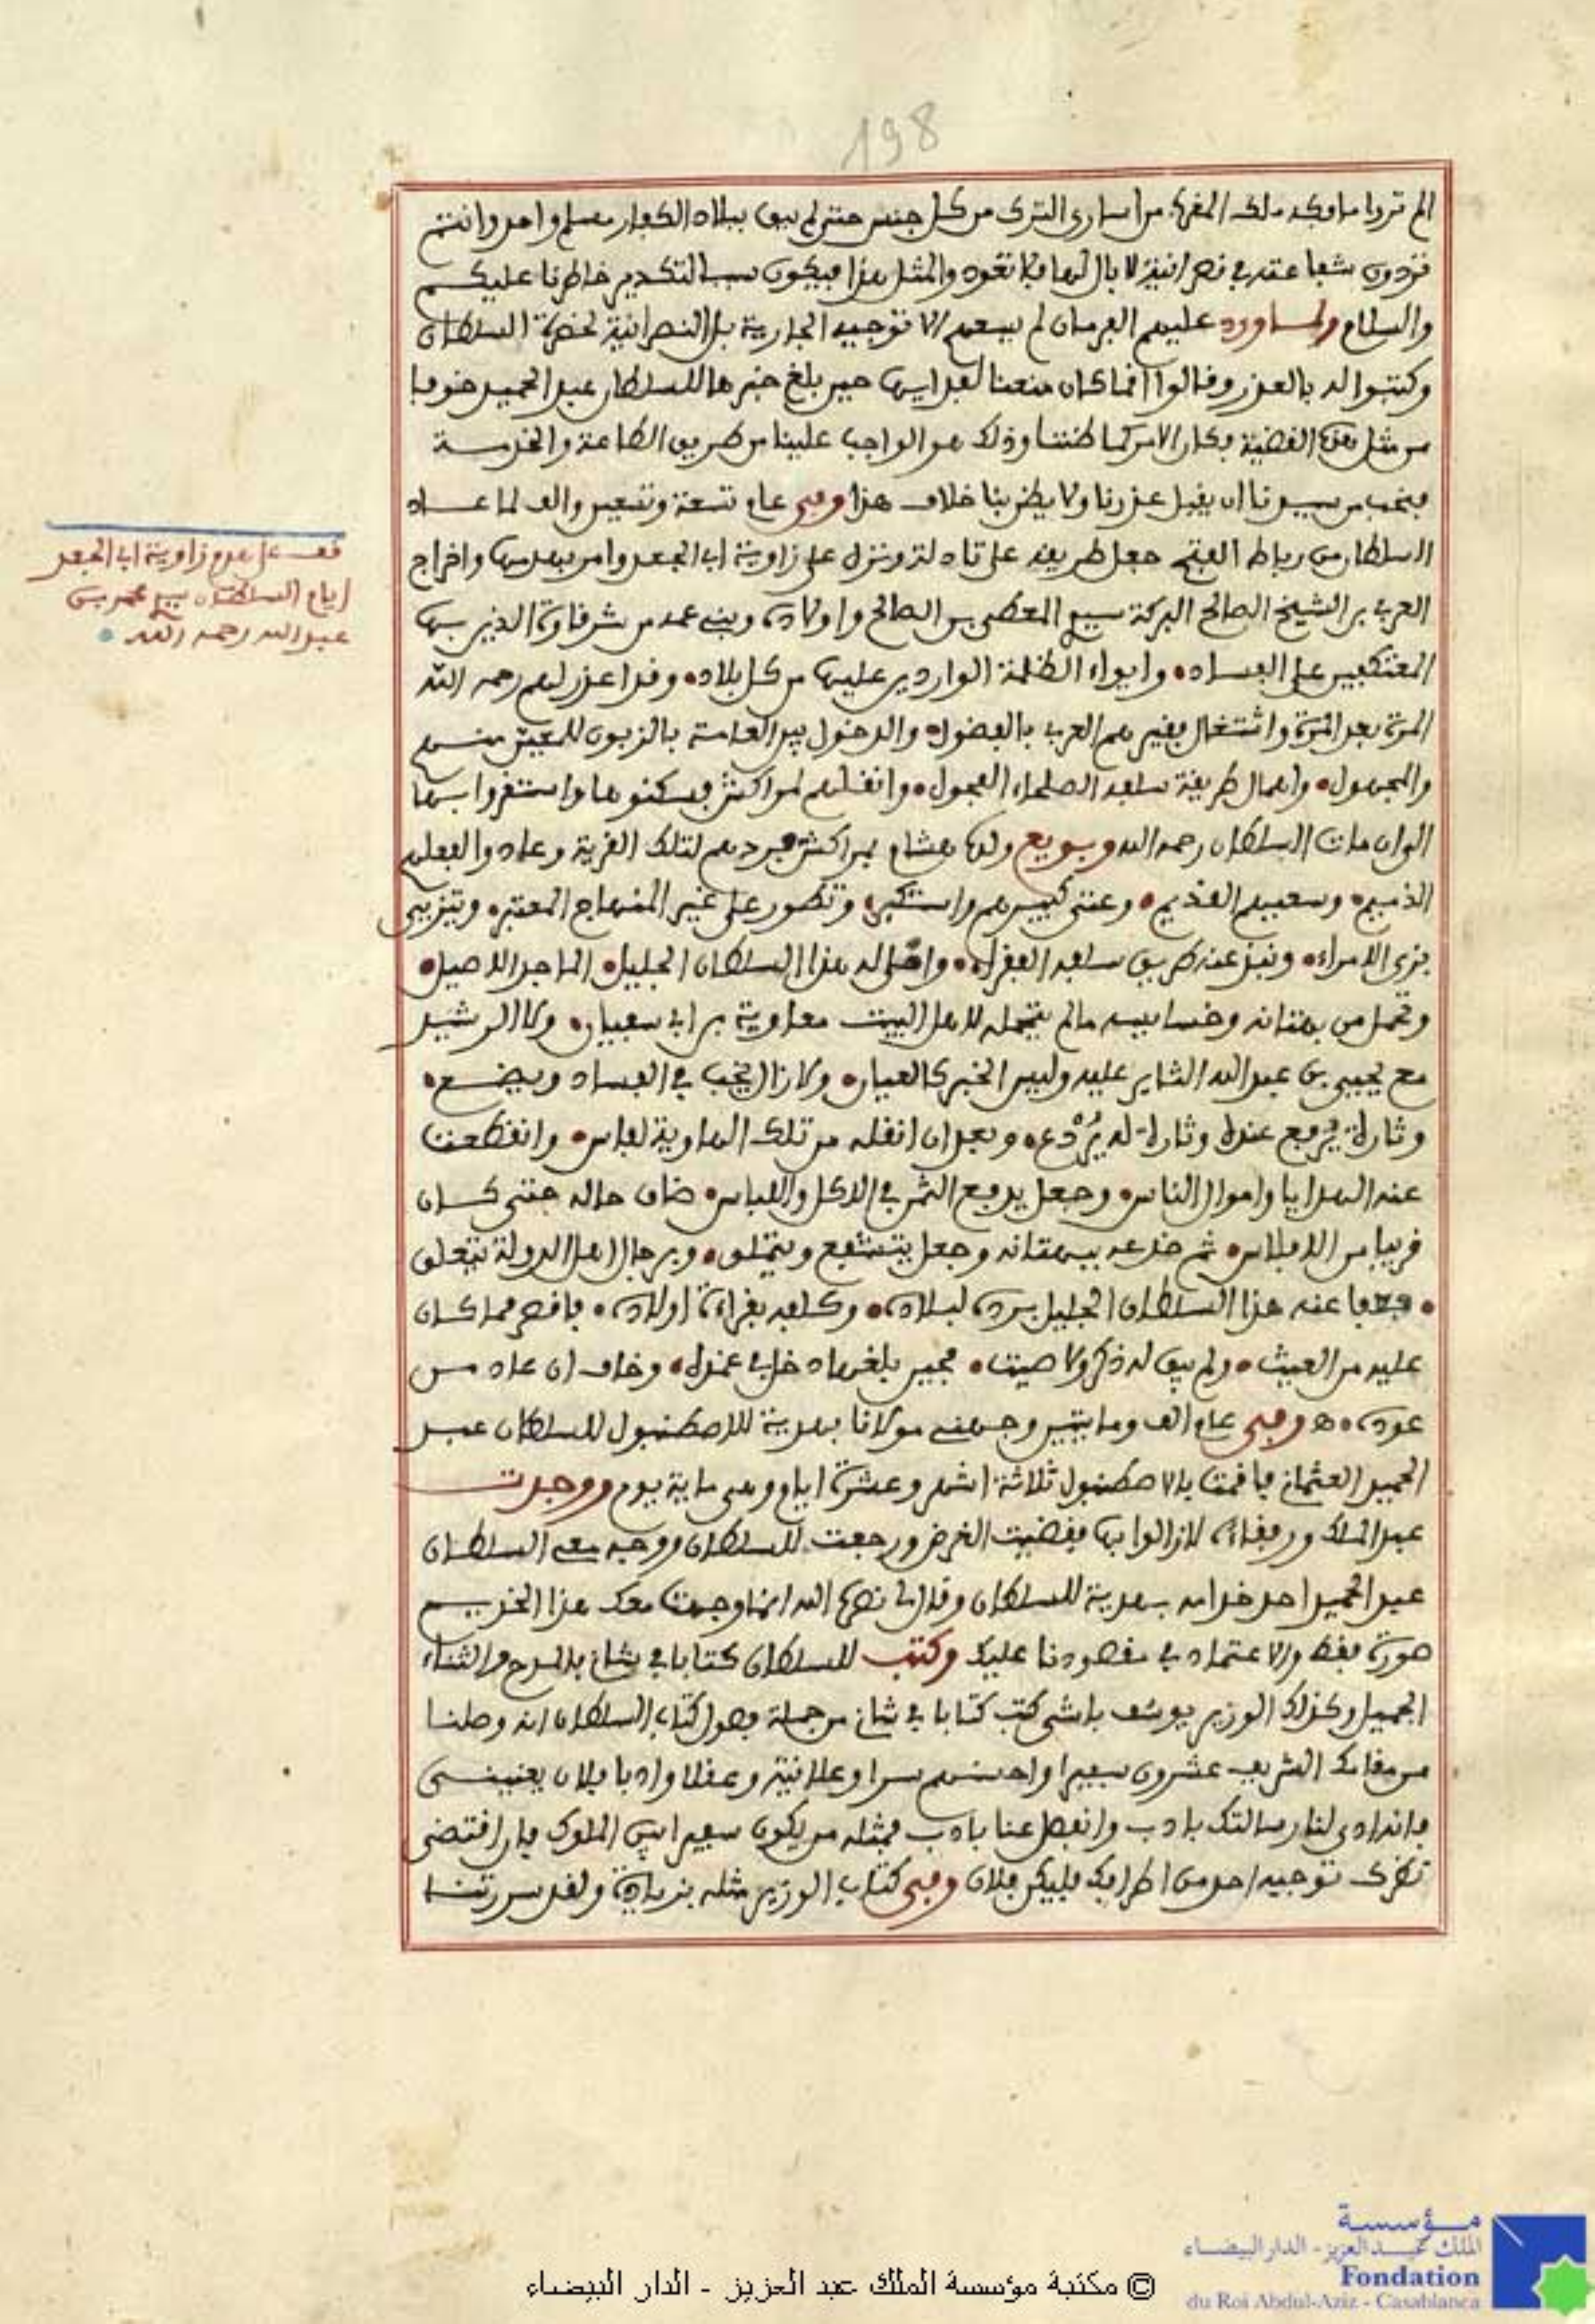 198
الم تروا ما فكه ملك المغرب من اسارى الترك من كل جنس حتى لم يبق ببلاد الكفار مسلم واحد وانتم
تردون شفاعته في نصرانية لا بال لها فلا تعود والمثل هذا فيكون سببا لتكدير خاطرنا عليكم
والسلام ولما ورد عليهم الفرمان لم يسعهم الا توجيه الجارية بل النصرانية لحضرة السلطان
وكتبوا له بالعذر وقالوا انما كان منعنا لفدايها حين بلغ خبرها للسلطان عبد الحميد خوفا
من مثل هذه القضية فكان الامر كما ظننا وذلك هو الواجب علينا من طريق الطاعة والخدمة
فنحب من سيدنا ان يقبل عذرنا ولا يظن بنا خلاف هذا وفي عام تسعة وتسعين والف لما عاد
السلطان من رباط الفتح جعل طريقه على تادلة ونزل على زاوية ابي الجعد وامر بهدمها واخراج
العربي بن الشيخ الصالح البركة سيدي المعطى بن الصالح واولاده وبني عمه من شرقاوة الذين بها
المعتكفين على الفساد، وايواء الظلمة الواردين عليها من كل بلاد، وقد اعذر لهم رحمه الله
المرة بعد المرة واشتغال بقيرهم العرب بالفضول، والدخول بين العامة بالزبون للمعين منهم
والمجهول، واهمال طريقة سلفه الصلحاء الفحول، وانقلهم لمراكش فسكنوها واستقروا بها
الى ان مات السلطان رحمه الله وبويع ولده هشام بمراكش فردهم لتلك القرية وعادوا لفعلهم
الذميم، وسعيهم القديم، وعتى كبيرهم واستكبر، وتطور على غير المنهاج المعتبر، وتزيى
بزي الامراء، ونبذ عنه طريق سلفه الفقراء، واملى له هذا السلطان الجليل، الماجد الاصيل،
وتحمل من بهتانه وخسايسه مالم يتحمله لاهل البيت معاوية بن ابي سفيان، ولا الرشيد
مع يحيى بن عبد الله الثاير عليه وليس الخبر كالعيان، ولا زال يخب في الفساد ويضع،
وتارة يرفع عنده وتارة له يردع، وبعد ان انقله من تلك الهاوية لفاس، وانقطعت
عنه الهدايا واموال الناس، وجعل يدفع الثمن في الاكل واللباس، ضاق حاله حتى كان
قريبا من الافلاس، ثم خدعه ببهتانه وجعل يتشفع ويتملق، وبرجال اهل الدولة يتعلق
، فعفا عنه هذا السلطان الجليل برده لبلاده، وكلفه بقراءة اولاده، فاقصر مما كان
عليه من العيث، ولم يبق له ذكر ولا صيت، فحين بلغها دخل في غمده، وخاف ان عاد من
عوده، ه وفي عام الف ومايتين وجهني مولانا بهدية للاصطنبول للسلطان عبد
الحميد العثماني فاقمت بالاصطنبول ثلاثة اشهر وعشرة ايام وهي ماية يوم ووجدت
عبد الملك ورفقاءه لازالوا بها فقضيت الغرض ورجعت للسلطان ووجه معي السلطان
عبد الحميد احد خدامه بهدية للسلطان وقال لي نصره الله انما وجهت معك هذا الخديم
صورة فقط والاعتماد في مقصودنا عليك وكتب للسلطان كتابا في شاني بالمدح والثناء
الجميل وكذلك الوزير يوسف باشى كتب كتابا في شاني من جملة فصول كتاب السلطان انه وصلنا
من مقامك الشريف عشرون سفيرا واحسنهم سرا وعلانية وعقلا وادبا فلان يعنيني
فانه ادى لنا رسالتك بادب وانفصل عنا بادب فمثله من يكون سفيرا بين الملوك فان اقتضى
نظرك توجيه احد من اطرافك فليكن فلان وفي كتاب الوزير مثله بزيادة ولقد سررتنا
قف على هدم زاوية ابي الجعد
ايام السلطان سيدي محمد بن
عبد الله رحمه الله
مؤسسة
الملك عبد العزيز - الدار البيضاء
Fondation
du Roi Abdul-Aziz - Casablanca
© مكتبة مؤسسة الملك عبد العزيز - الدار البيضاء